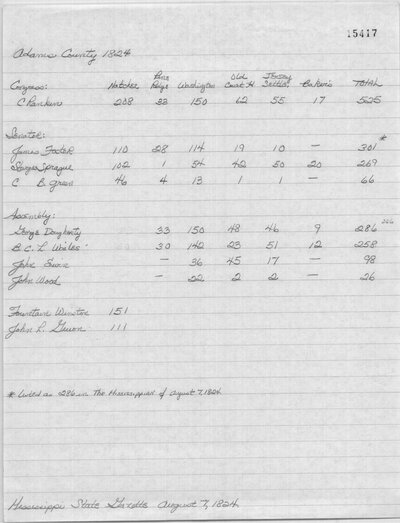 15417
Adams County 1824
Pine Old Jersey
Congress: Natchez Ridge Washington Court H. Settle. Baker's TOTAL
C Rankin 208 33 150 62 55 17 525
Senator: *
James Foster 110 28 114 19 10 — 301
Sturges Sprague 102 1 54 42 50 20 269
C B. Green 46 4 13 1 1 — 66
Assembly:
George Dougherty 33 150 48 46 9 286
B.C. L Wailes 30 142 23 51 12 258
John Swan — 36 45 17 — 98
John Wood — 22 2 2 — 26
Fountain Winston 151
John L. Guion 111
* Listed as 286 in The Mississippian of August 7, 1824
Mississippi State Gazette August 7, 1824